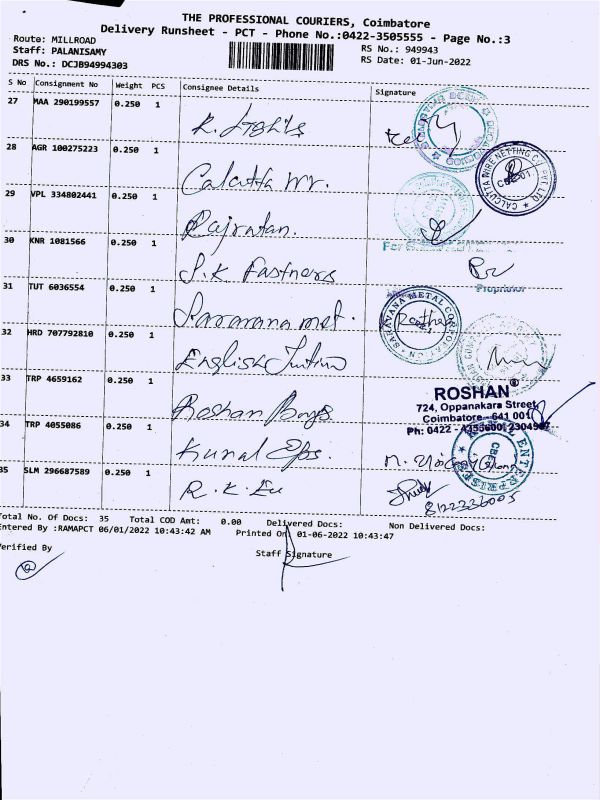 THE PROFESSIONAL COURIERS, Coimbatore
Delivery Runsheet - PCT - Phone No.:0422-3505555 - Page No.:3
Route: MILLROAD
RS No.: 949943
Staff: PALANISAMY
RS Date: 01-Jun-2022
DRS No.: DCJB94994303
S No Consignment No Weight PCS Consignee Details Signature
27 MAA 290199557 0.250 1
28 AGR 100275223 0.250 1 Calcutta wr.
29 VPL 334802441 0.250 1 Rajratan.
30 KNR 1081566 0.250 1 S.K Fastners
31 TUT 6036554 0.250 1 Saravana met.
32 HRD 707792810 0.250 1 English
33 TRP 4659162 0.250 1 Roshan Bags
34 TRP 4055086 0.250 1 Kunal Eps.
35 SLM 296687589 0.250 1 R.K.
CALCUTTA WIRE NETTING CO. PVT LTD
Proprietor
SARAVANA METAL CORPORATION
ROSHAN®
724, Oppanakara Street,
Coimbatore - 641 001
Ph: 0422 -
ENTERPRISES
8122336005
Total No. Of Docs: 35 Total COD Amt: 0.00 Delivered Docs: Non Delivered Docs:
Entered By :RAMAPCT 06/01/2022 10:43:42 AM Printed On 01-06-2022 10:43:47
Verified By
Staff Signature